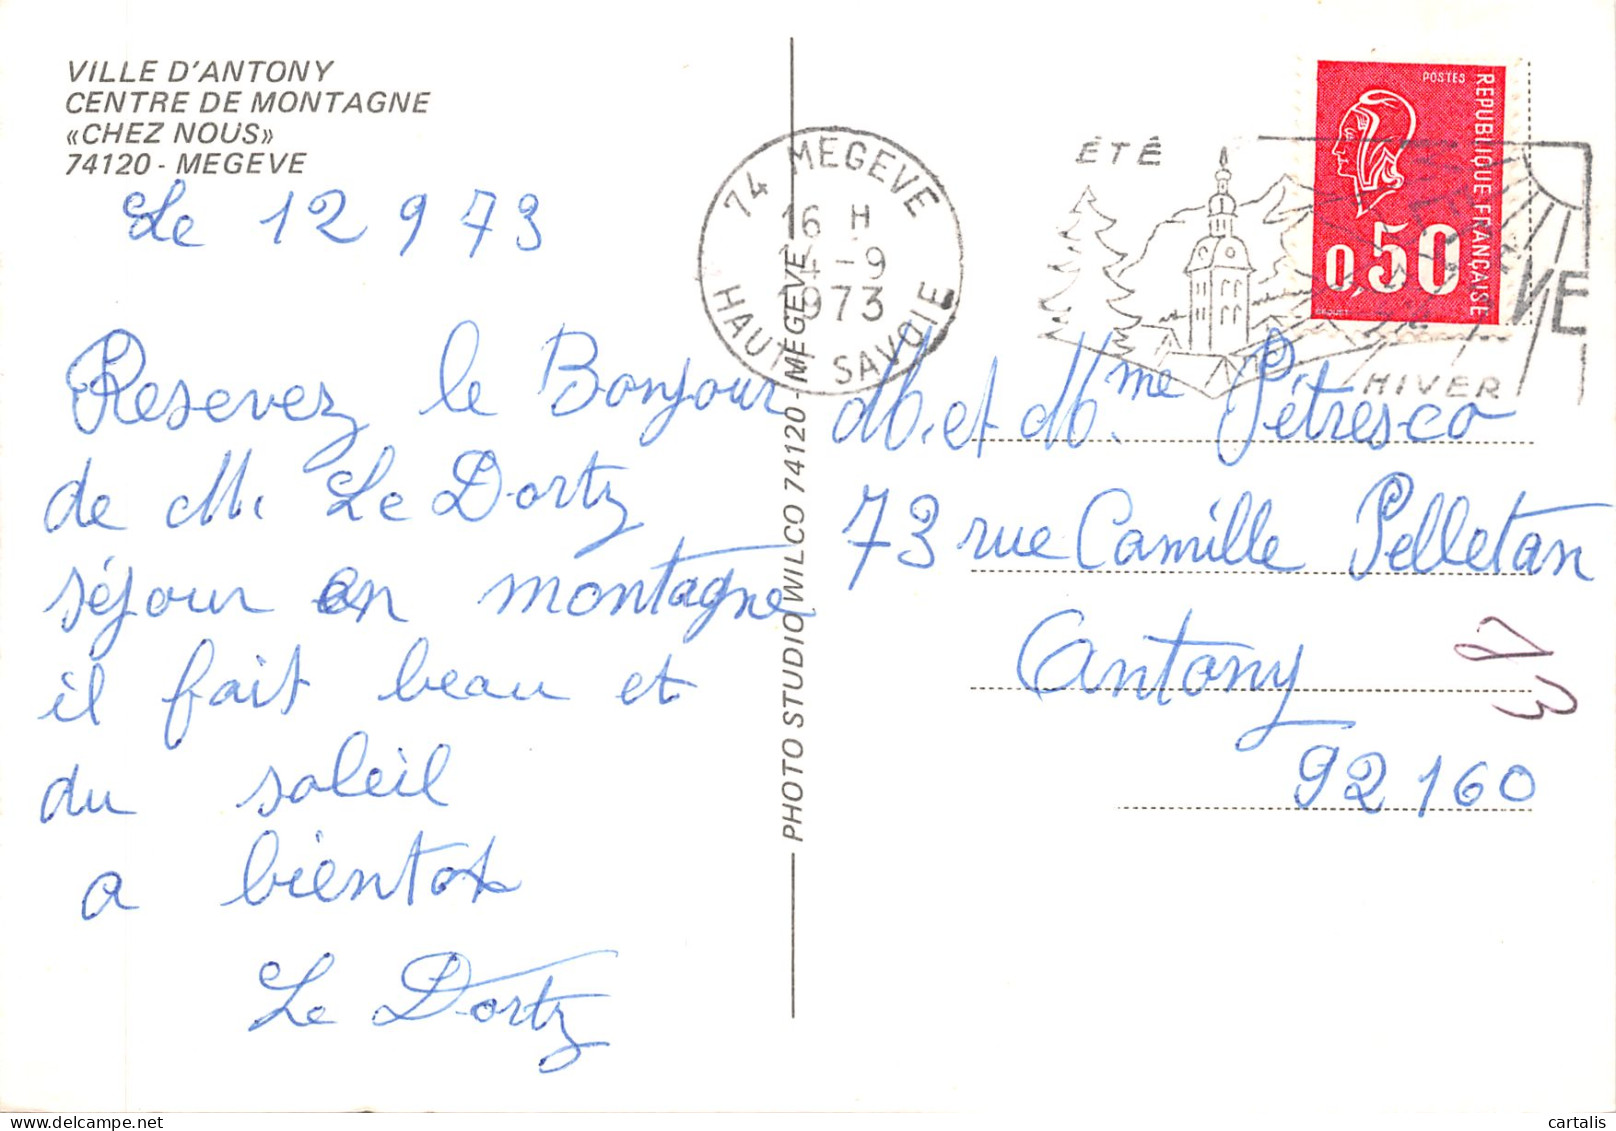 VILLE D'ANTONY
CENTRE DE MONTAGNE
«CHEZ NOUS»
74120 - MEGEVE
Le 12 9 73
Resevez le Bonjour
de M. Le Dortz
séjour en montagne
il fait beau et
du soleil
a bientot
Le Dortz
PHOTO STUDIO WILCO 74120 - MEGEVE
74 MEGEVE
16 H
-9
1973
HAUTE SAVOIE
ÉTÉ
VE
HIVER
POSTES
REPUBLIQUE FRANÇAISE
0,50
M. et Mme Pétresco
73 rue Camille Pelletan
Antony
92160
delcampe.net
cartalis